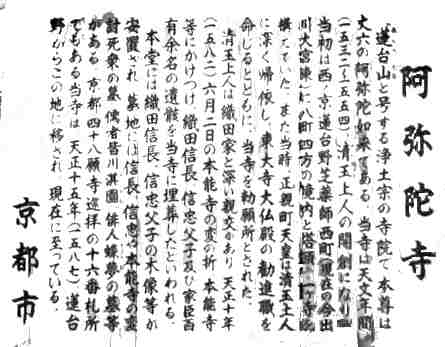 阿弥陀寺
蓮台山と号する浄土宗の寺院で本尊は
丈六の阿弥陀如来である。当寺は天文年間
(一五三二〜五五四)清玉上人の開創になり
当初は西ノ京蓮台野芝薬師西町(現在の今出
川大宮東)に八町四方の境内と塔頭
構えていた。また当時、正親町天皇は清玉上人
に深く帰依し、東大寺大仏殿の勧進職を
命じるとともに、当寺を勅願所とされた。
清玉上人は織田家と深い親交があり、天正十年
(一五八二)六月二日の本能寺の変の折、本能寺
等にかけつけ、織田信長、信忠父子及び家臣百
有余名の遺骸を当寺に埋葬したといわれる。
本堂には織田信長、信忠父子の木像等が
安置され、墓地には信長、信忠 本能寺の変
討死衆の墓、儒者皆川淇園、俳人蝶夢の墓等
がある。京都四十八願寺巡拝の十六番札所
でもある当寺は、天正十五年(一五八七)蓮台
野からこの地に移され、現在に至っている。
京都市